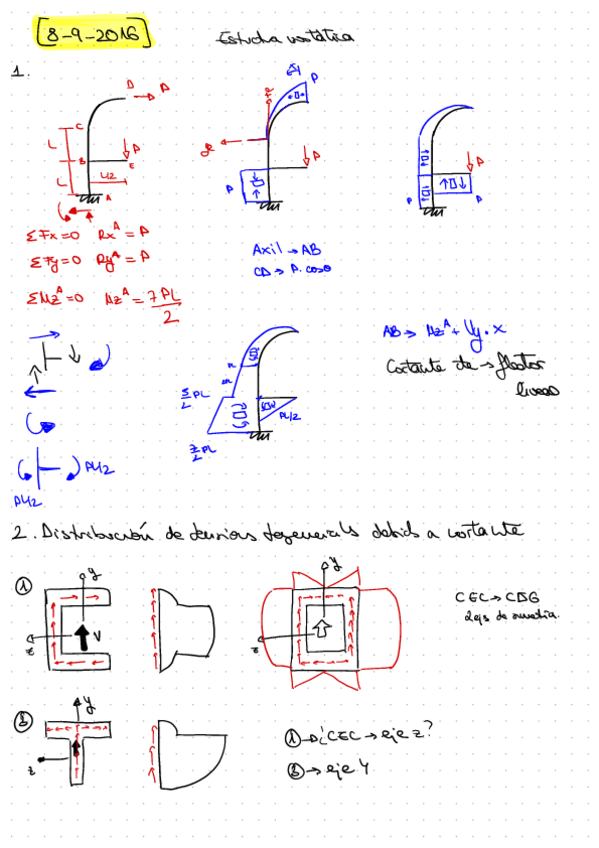 [8-9-2016]
1.
D
P
C
L
B
P
E
L
L/2
A
P
P
P
P
P
P
ΣFx=0 Rx^A = P
ΣFy=0 Ry^A = P
ΣMz^A=0 Mz^A = 7PL/2
Axil → AB
CD → P. cosθ
AB → Mz^A + Vy·x
Cortante de → flector
lineal
5/2 PL
PL/2
7/2 PL
PL/2
PL/2
2. Distribución de tensiones tangenciales debido a cortante
①
y
z
V
y
z
CEC → CDG
ejes de simetría.
②
y
z
① → ¿CEC → eje z?
② → eje y